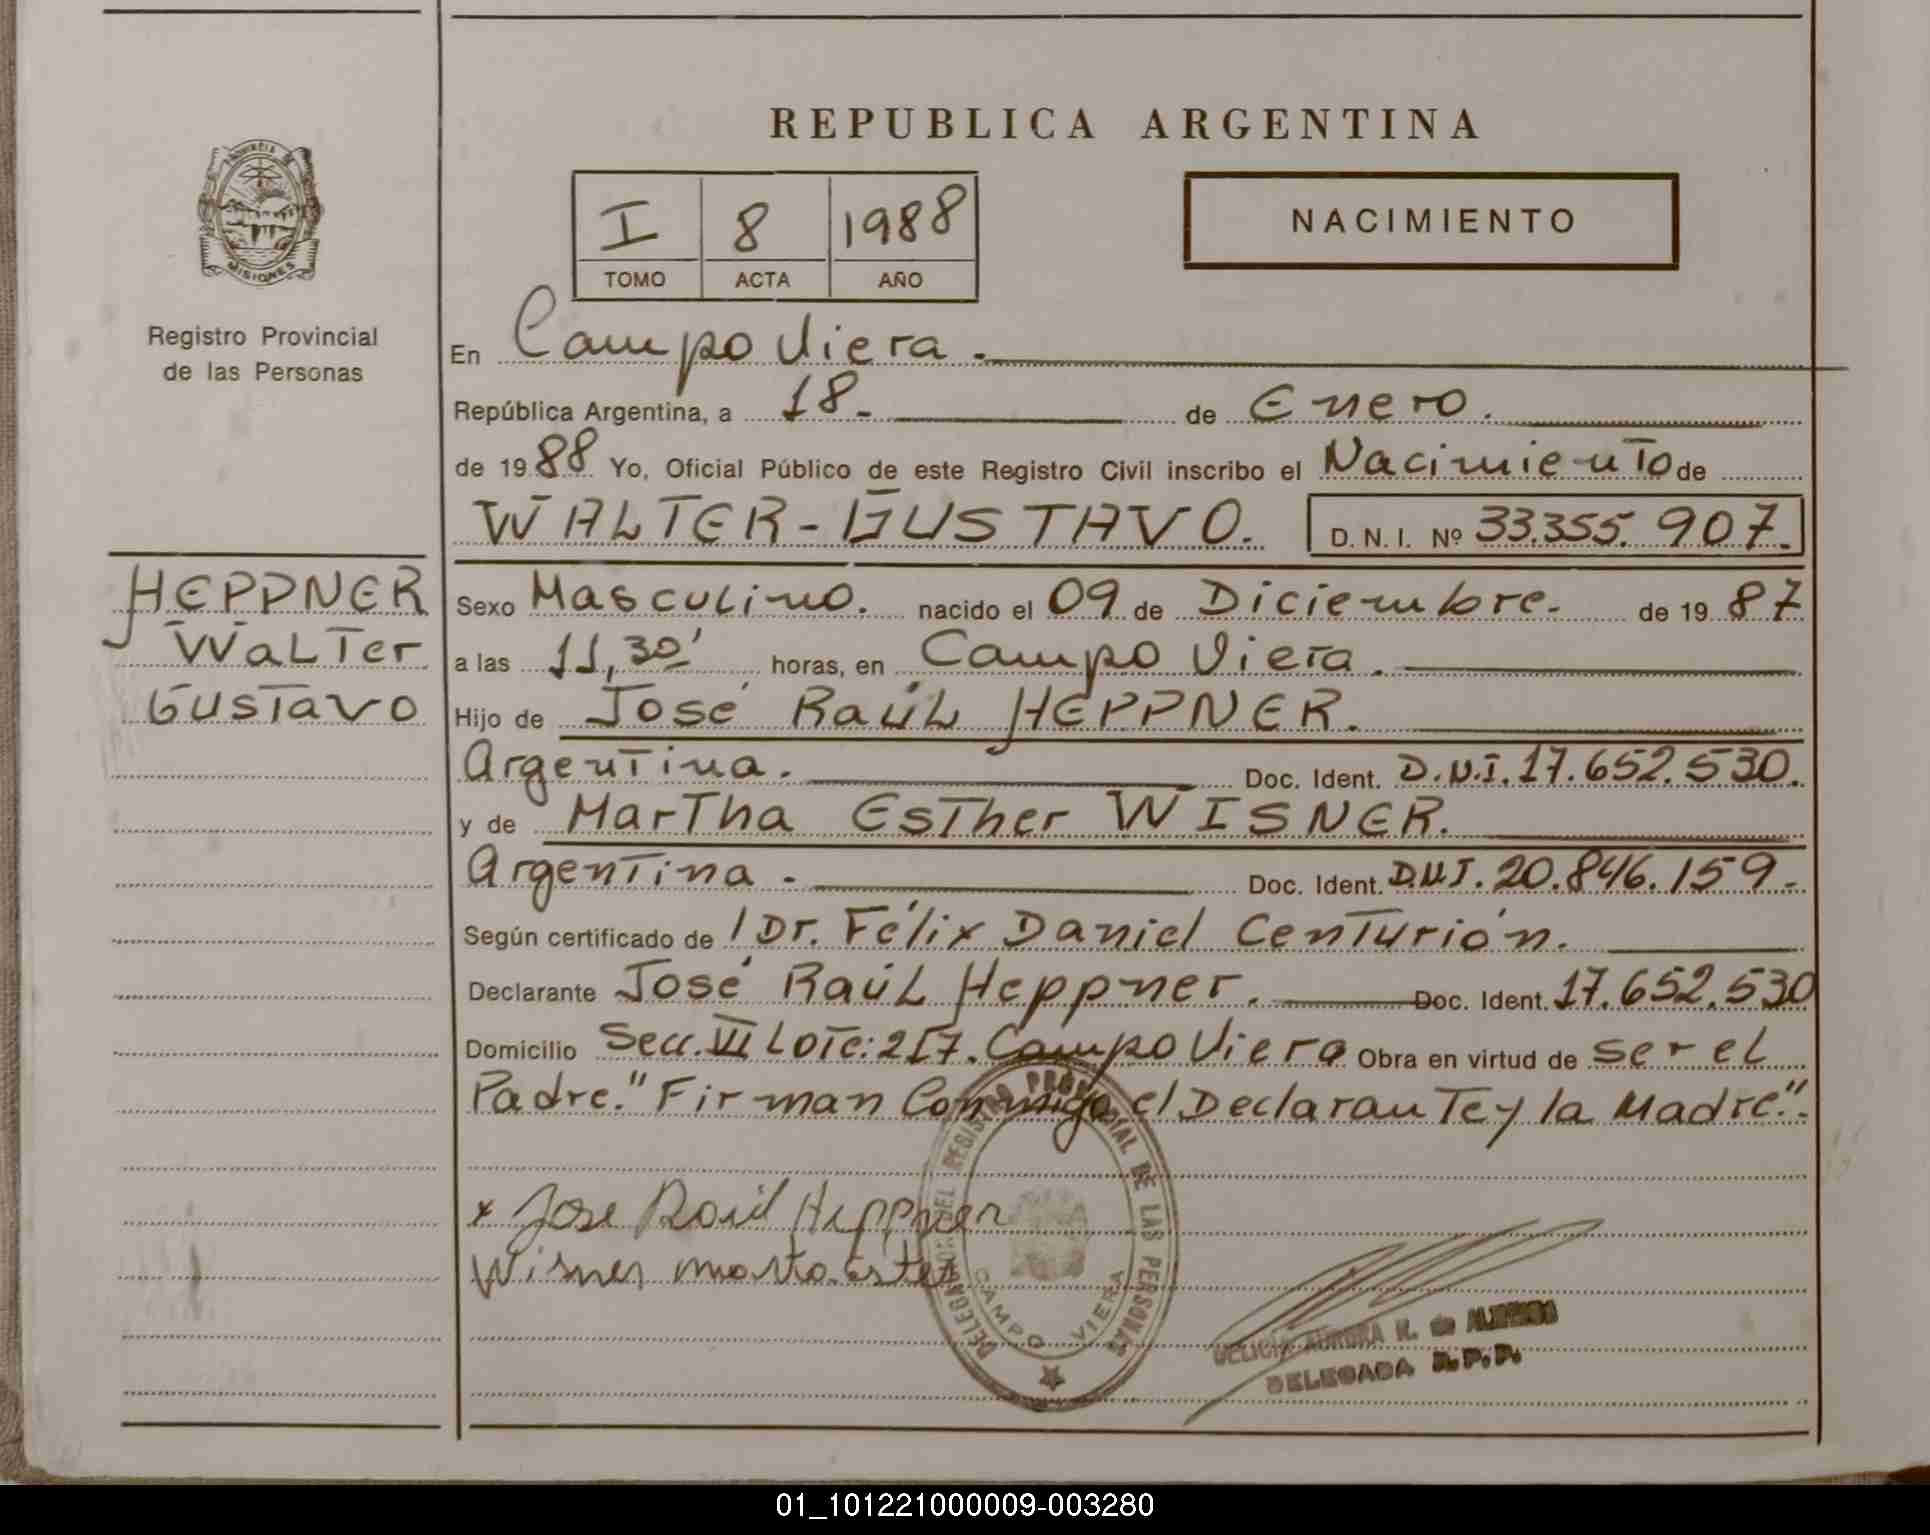 REPUBLICA ARGENTINA
PROVINCIA DE
MISIONES
Registro Provincial
de las Personas
I 8 1988
TOMO ACTA AÑO
NACIMIENTO
En Campo Viera.
República Argentina, a 18 - de Enero.
de 1988 Yo, Oficial Público de este Registro Civil inscribo el Nacimiento de
WALTER - GUSTAVO. D. N. I. Nº 33.355.907.
HEPPNER
Walter
Gustavo
Sexo Masculino. nacido el 09 de Diciembre. de 1987
a las 11,30' horas, en Campo Viera.
Hijo de José Raúl HEPPNER.
Argentina. Doc. Ident. D.N.I. 17.652.530.
y de Martha Esther WISNER.
Argentina. Doc. Ident. D.N.I. 20.846.159.
Según certificado de / Dr. Félix Daniel Centurión.
Declarante José Raúl Heppner. Doc. Ident. 17.652.530
Domicilio Secc. VII Lote: 217. Campo Viera Obra en virtud de ser el
Padre. "Firman Conmigo el Declarante y la Madre".
x Jose Raul Heppner
Wisner Marta Ester
DELEGACION DEL REGISTRO PROVINCIAL DE LAS PERSONAS
CAMPO VIERA
DELICIA AURORA R. de
DELEGADA R.P.P.
01_101221000009-003280